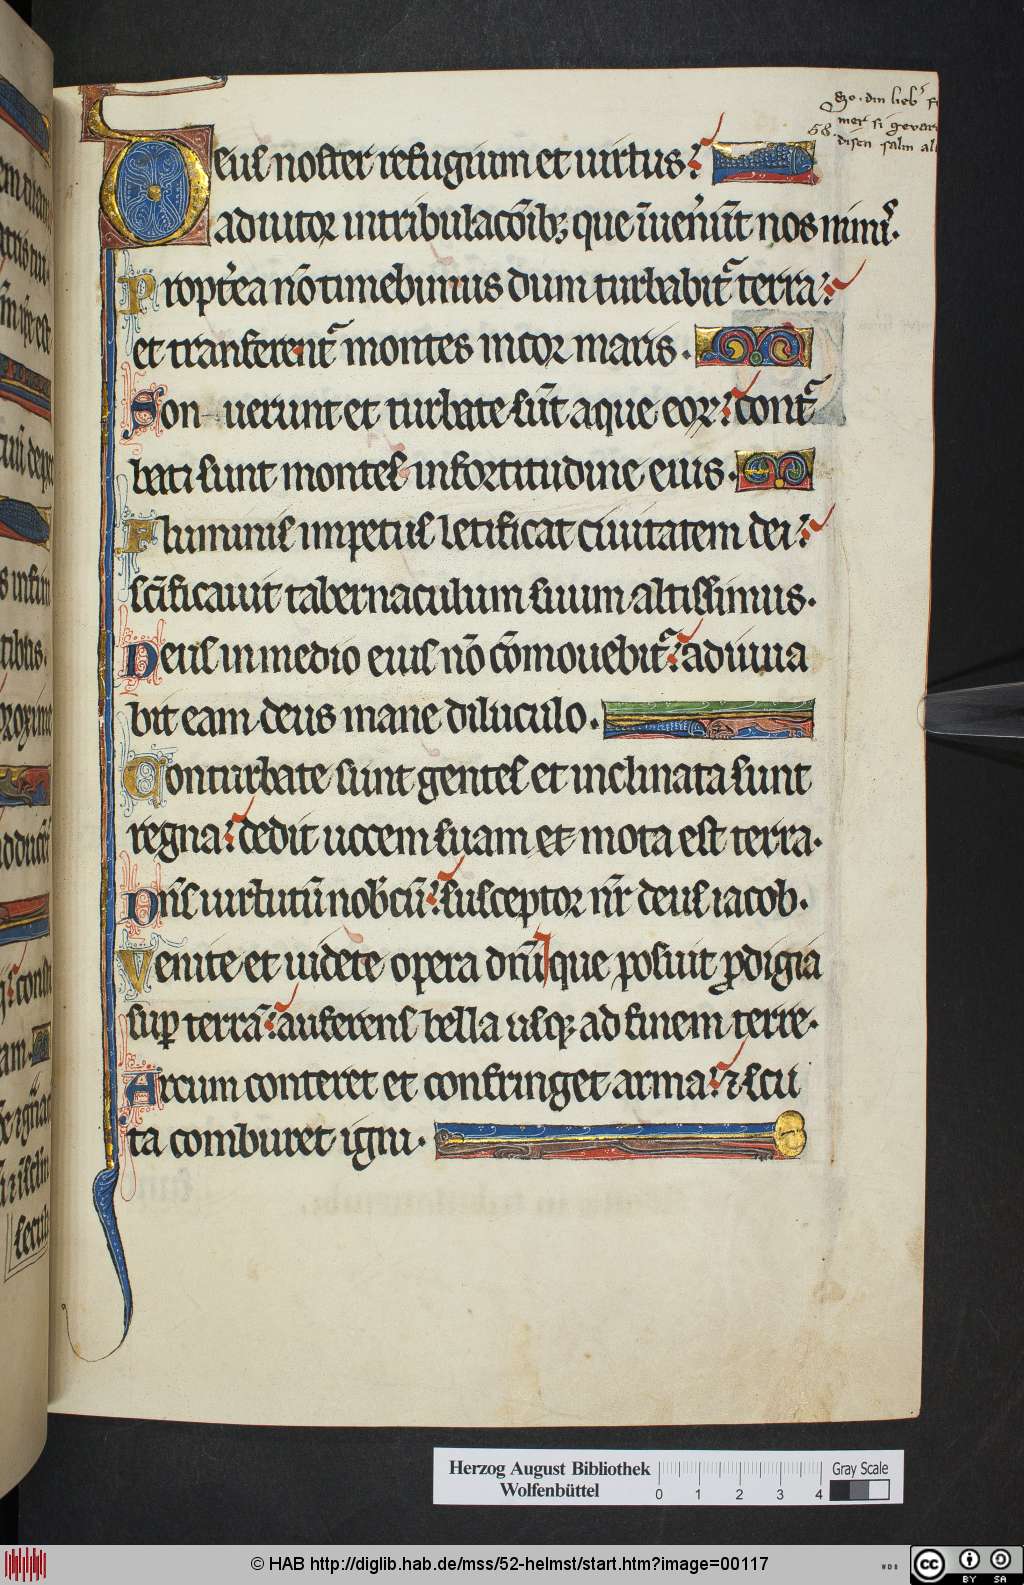 gzo · din lieb
mer si gevar
58. disen salm al
Deus noster refugium et uirtus:
adiutor in tribulac̄oib; que īuen̄ūt nos nimis.
Propt̄ea nō timebimus dum turbabit̃ terra:
et transferent̃ montes in cor maris.
Sonuerunt et turbate sūt aque eoꝝ: cont̃
bati sunt montes in fortitudine eius.
Fluminis impetus letificat ciuitatem dei:
sc̄ificauit tabernaculum suum altissimus.
Deus in medio eius nō c̄omouebit̃: adiuua
bit eam deus mane diluculo.
Conturbate sunt gentes et inclinata sunt
regna: dedit uccem suam et mota est terra.
Dn̄s uirtutū nobcū: susceptor nr̄ deus iacob.
Venite et uidete opera dn̄i que posuit ꝓdigia
suꝑ terrā: auferens bella usq; ad finem terre.
Arcum conteret et confringet arma: ⁊ scu
ta comburet igni.
em
est
tibus.
proxime
am.
Herzog August Bibliothek
Wolfenbüttel
0 1 2 3 4
Gray Scale
© HAB http://diglib.hab.de/mss/52-helmst/start.htm?image=00117
WDB
cc BY SA